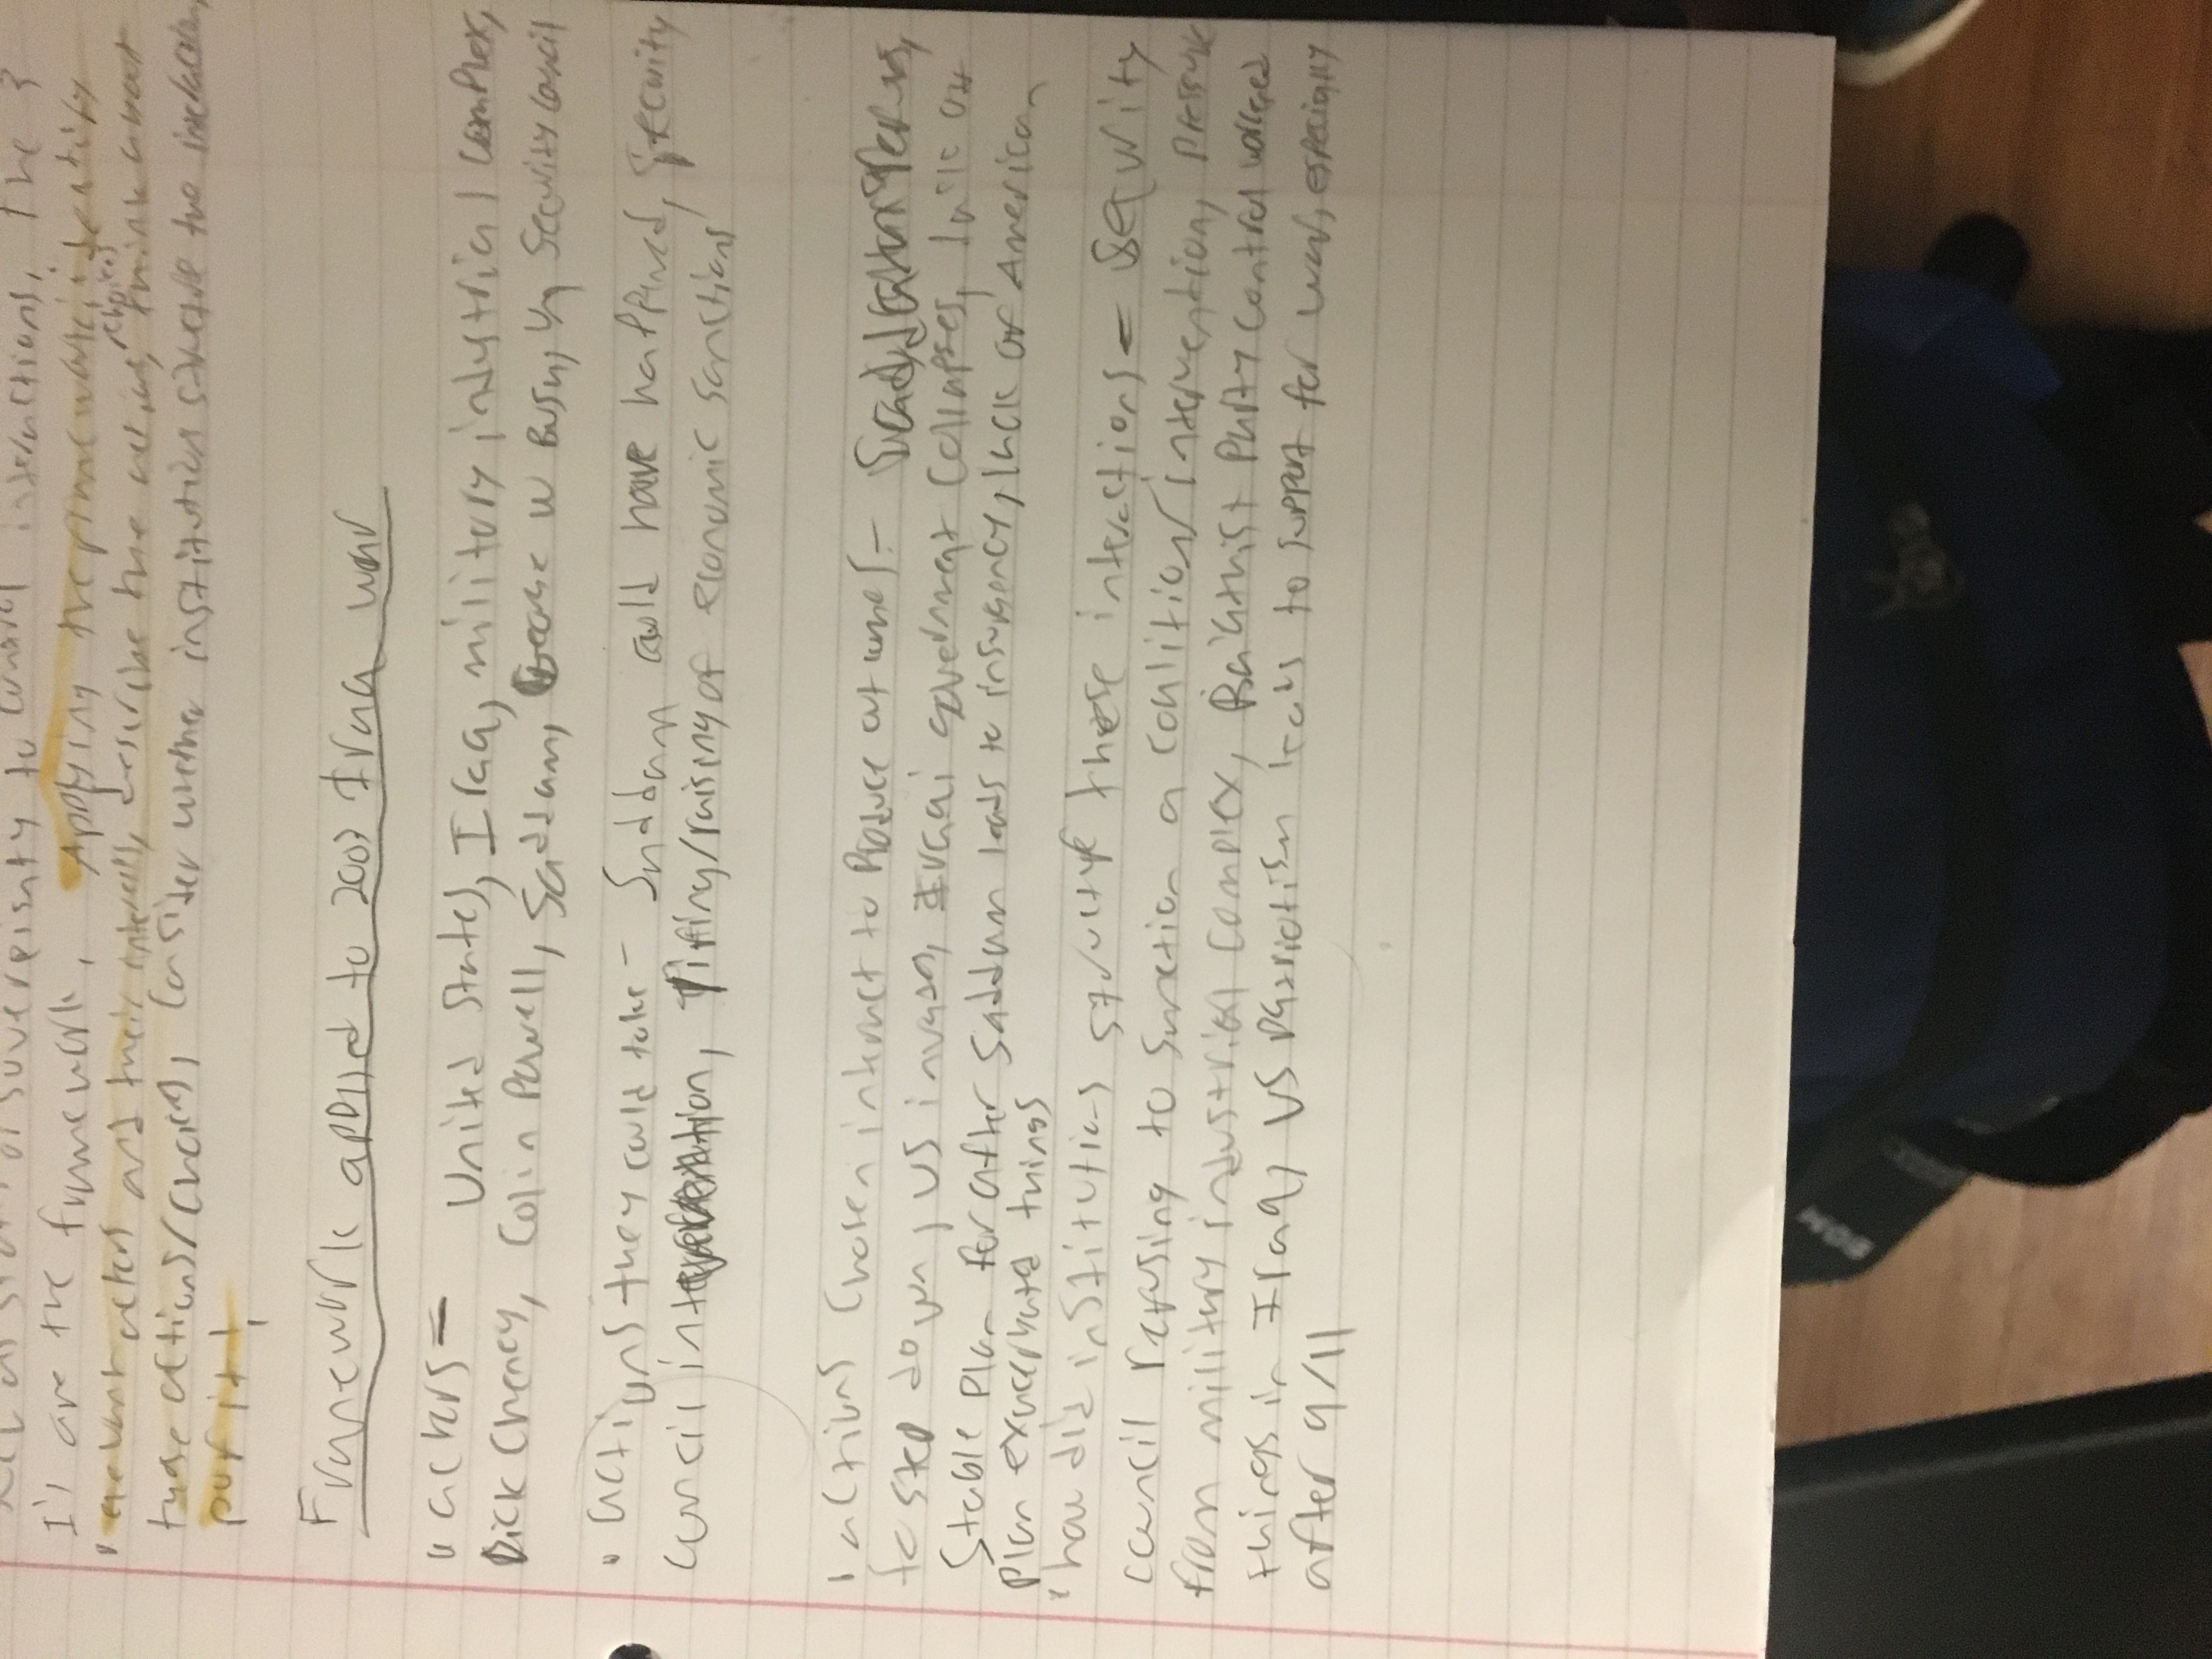 of suvereignty to control interactions, The 3
I's are the framework, Applying the framework: identify
relevant actors and their interests, describe the actions, think about
choices
those actions/choices, Consider whether institutions structure the interaction,
put it!
Framework applied to 2003 Iraq war
actors - United States, Iraq, military industrial complex,
Dick Cheney, Colin Powell, Saddam, George W Bush, Un Security Council
actions they could take - Saddam could have happened, Security
council intervention, lifting/raising of economic sanctions
actions chosen interact to produce outcomes -
to step down, US invades, Iraqi government collapses, lack of
stable plan for after Saddam leads to insurgency, lack of American
plan exacerbated things
how did institutions structure these interactions - Security
council refusing to sanction a coalition/intervention, pressure
from military industrial complex, Ba'athist Party control worsened
things in Iraq, US Patriotism leads to support for war, especially
after 9/11